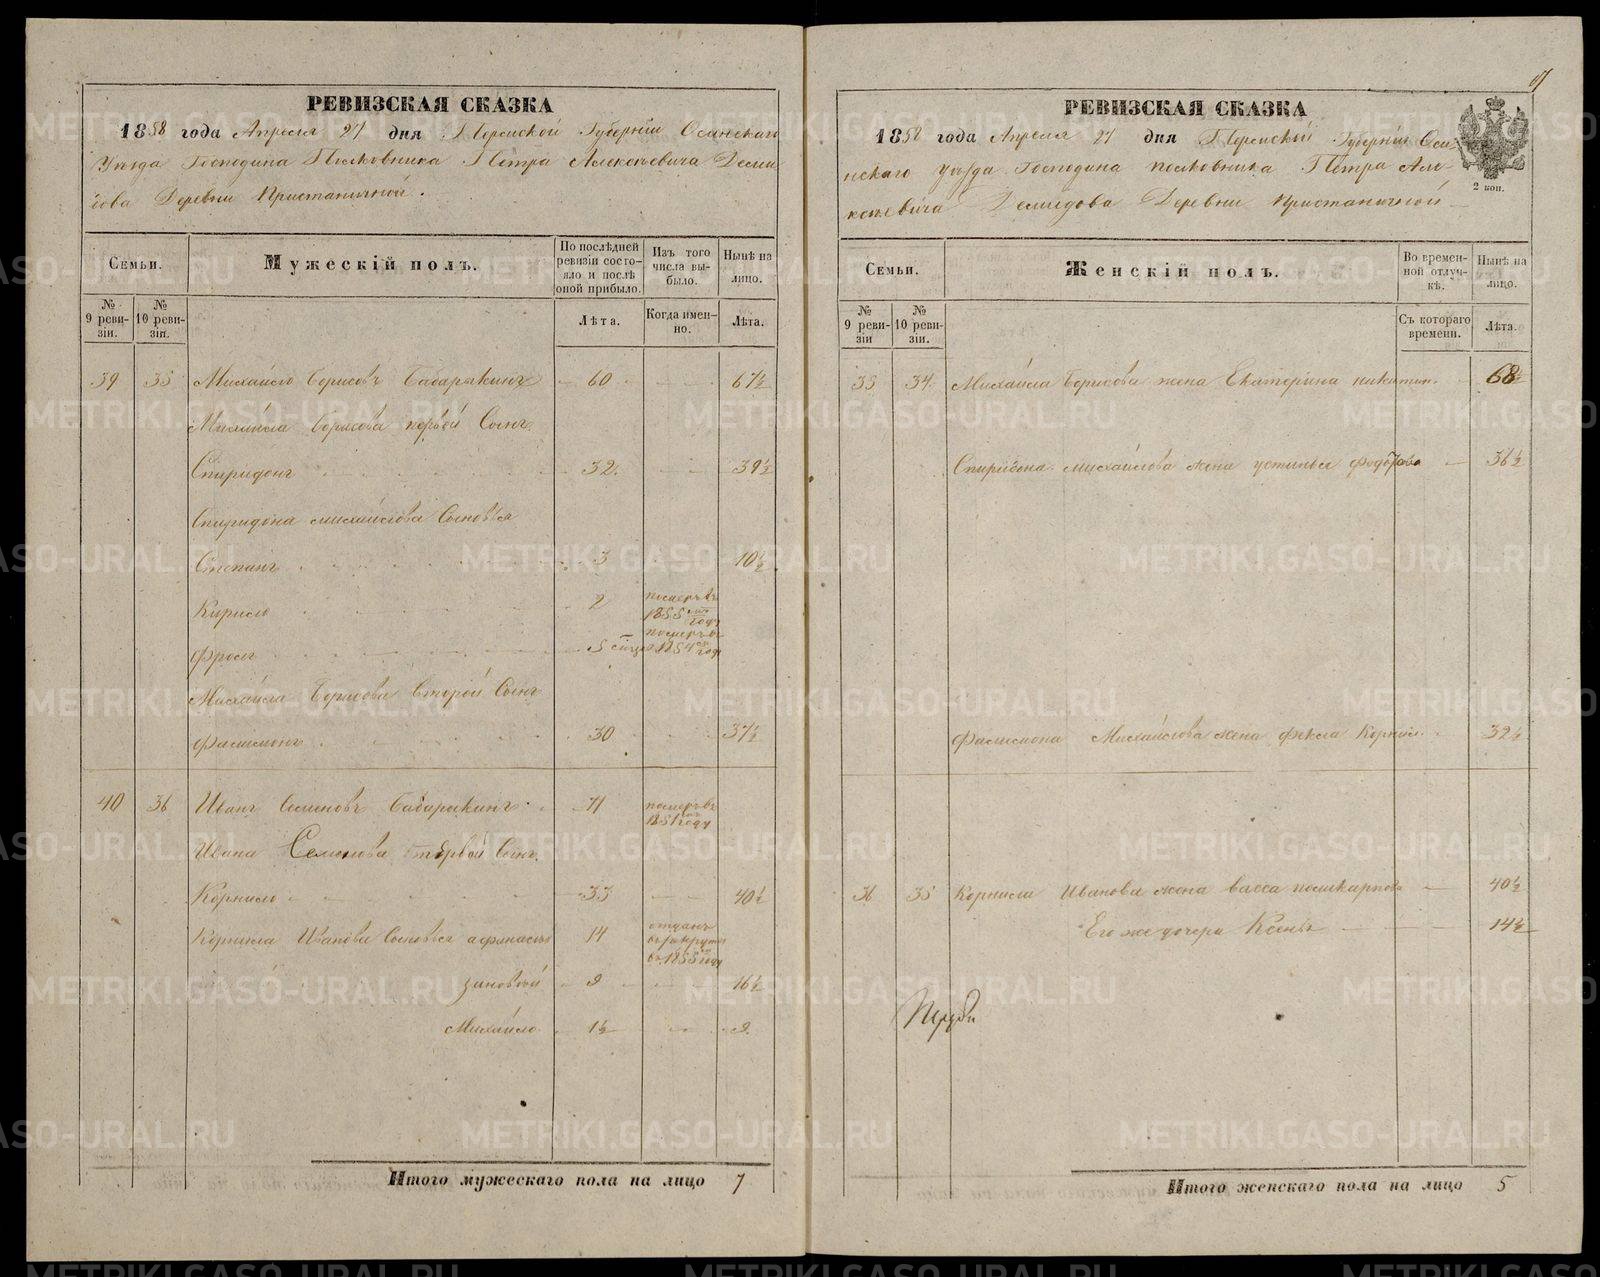 РЕВИЗСКАЯ СКАЗКА
1858 года Апреля 27 дня Пермской Губерніи Осинскаго
Уѣзда Господина Полковника Петра Алексѣевича Деми
дова Деревни Пристаничной.
Семьи.
Мужескій полъ.
По послѣдней ревизіи состояло и послѣ оной прибыло.
Изъ того числа выбыло.
Нынѣ на лицо.
№ 9 ревизіи.
№ 10 ревизіи.
Лѣта.
Когда именно.
Лѣта.
39 35 Михайло Борисовъ Бабарыкинъ 60 67½
Михайла Борисова первой Сынъ
Спиридонъ 32. 39½
Спиридона Михайлова Сыновья
Степанъ 3 10½
Кирило 2 померъ въ 1855 году
Фролъ 5 померъ въ 1854 году
Михайла Борисова Второй Сынъ
Филимонъ 30 37½
40 36 Иванъ Семеновъ Бабарыкинъ 71 померъ въ 1851 году
Ивана Семенова первой Сынъ.
Корнило 33 40½
Корнила Иванова Сыновья Афанасей 14 отданъ въ рекруты въ 1855 году
Зиновей 9 16½
Михайло 1½ 9.
Итого мужескаго пола на лицо 7
РЕВИЗСКАЯ СКАЗКА
1858 года Апреля 27 дня Пермской Губерніи Оси-
нскаго Уѣзда Господина Полковника Петра Але-
ксѣевича Демидова Деревни Пристаничной
2 коп.
Семьи.
Женскій полъ.
Во временной отлучкѣ.
Нынѣ на лицо.
№ 9 ревизіи
№ 10 ревизіи.
Съ котораго времени.
Лѣта.
35 34. Михайла Борисова жена Екатерина Никитин. 68½
Спиридона Михайлова жена Устинья Федотова 36½
Филимона Михайлова жена Фекла Корнил. 32½
36 35 Корнила Иванова жена Васса Поликарпова 40½
Его же дочери Ксенья 14½
Итого женскаго пола на лицо 5
METRIKI.GASO-URAL.RU